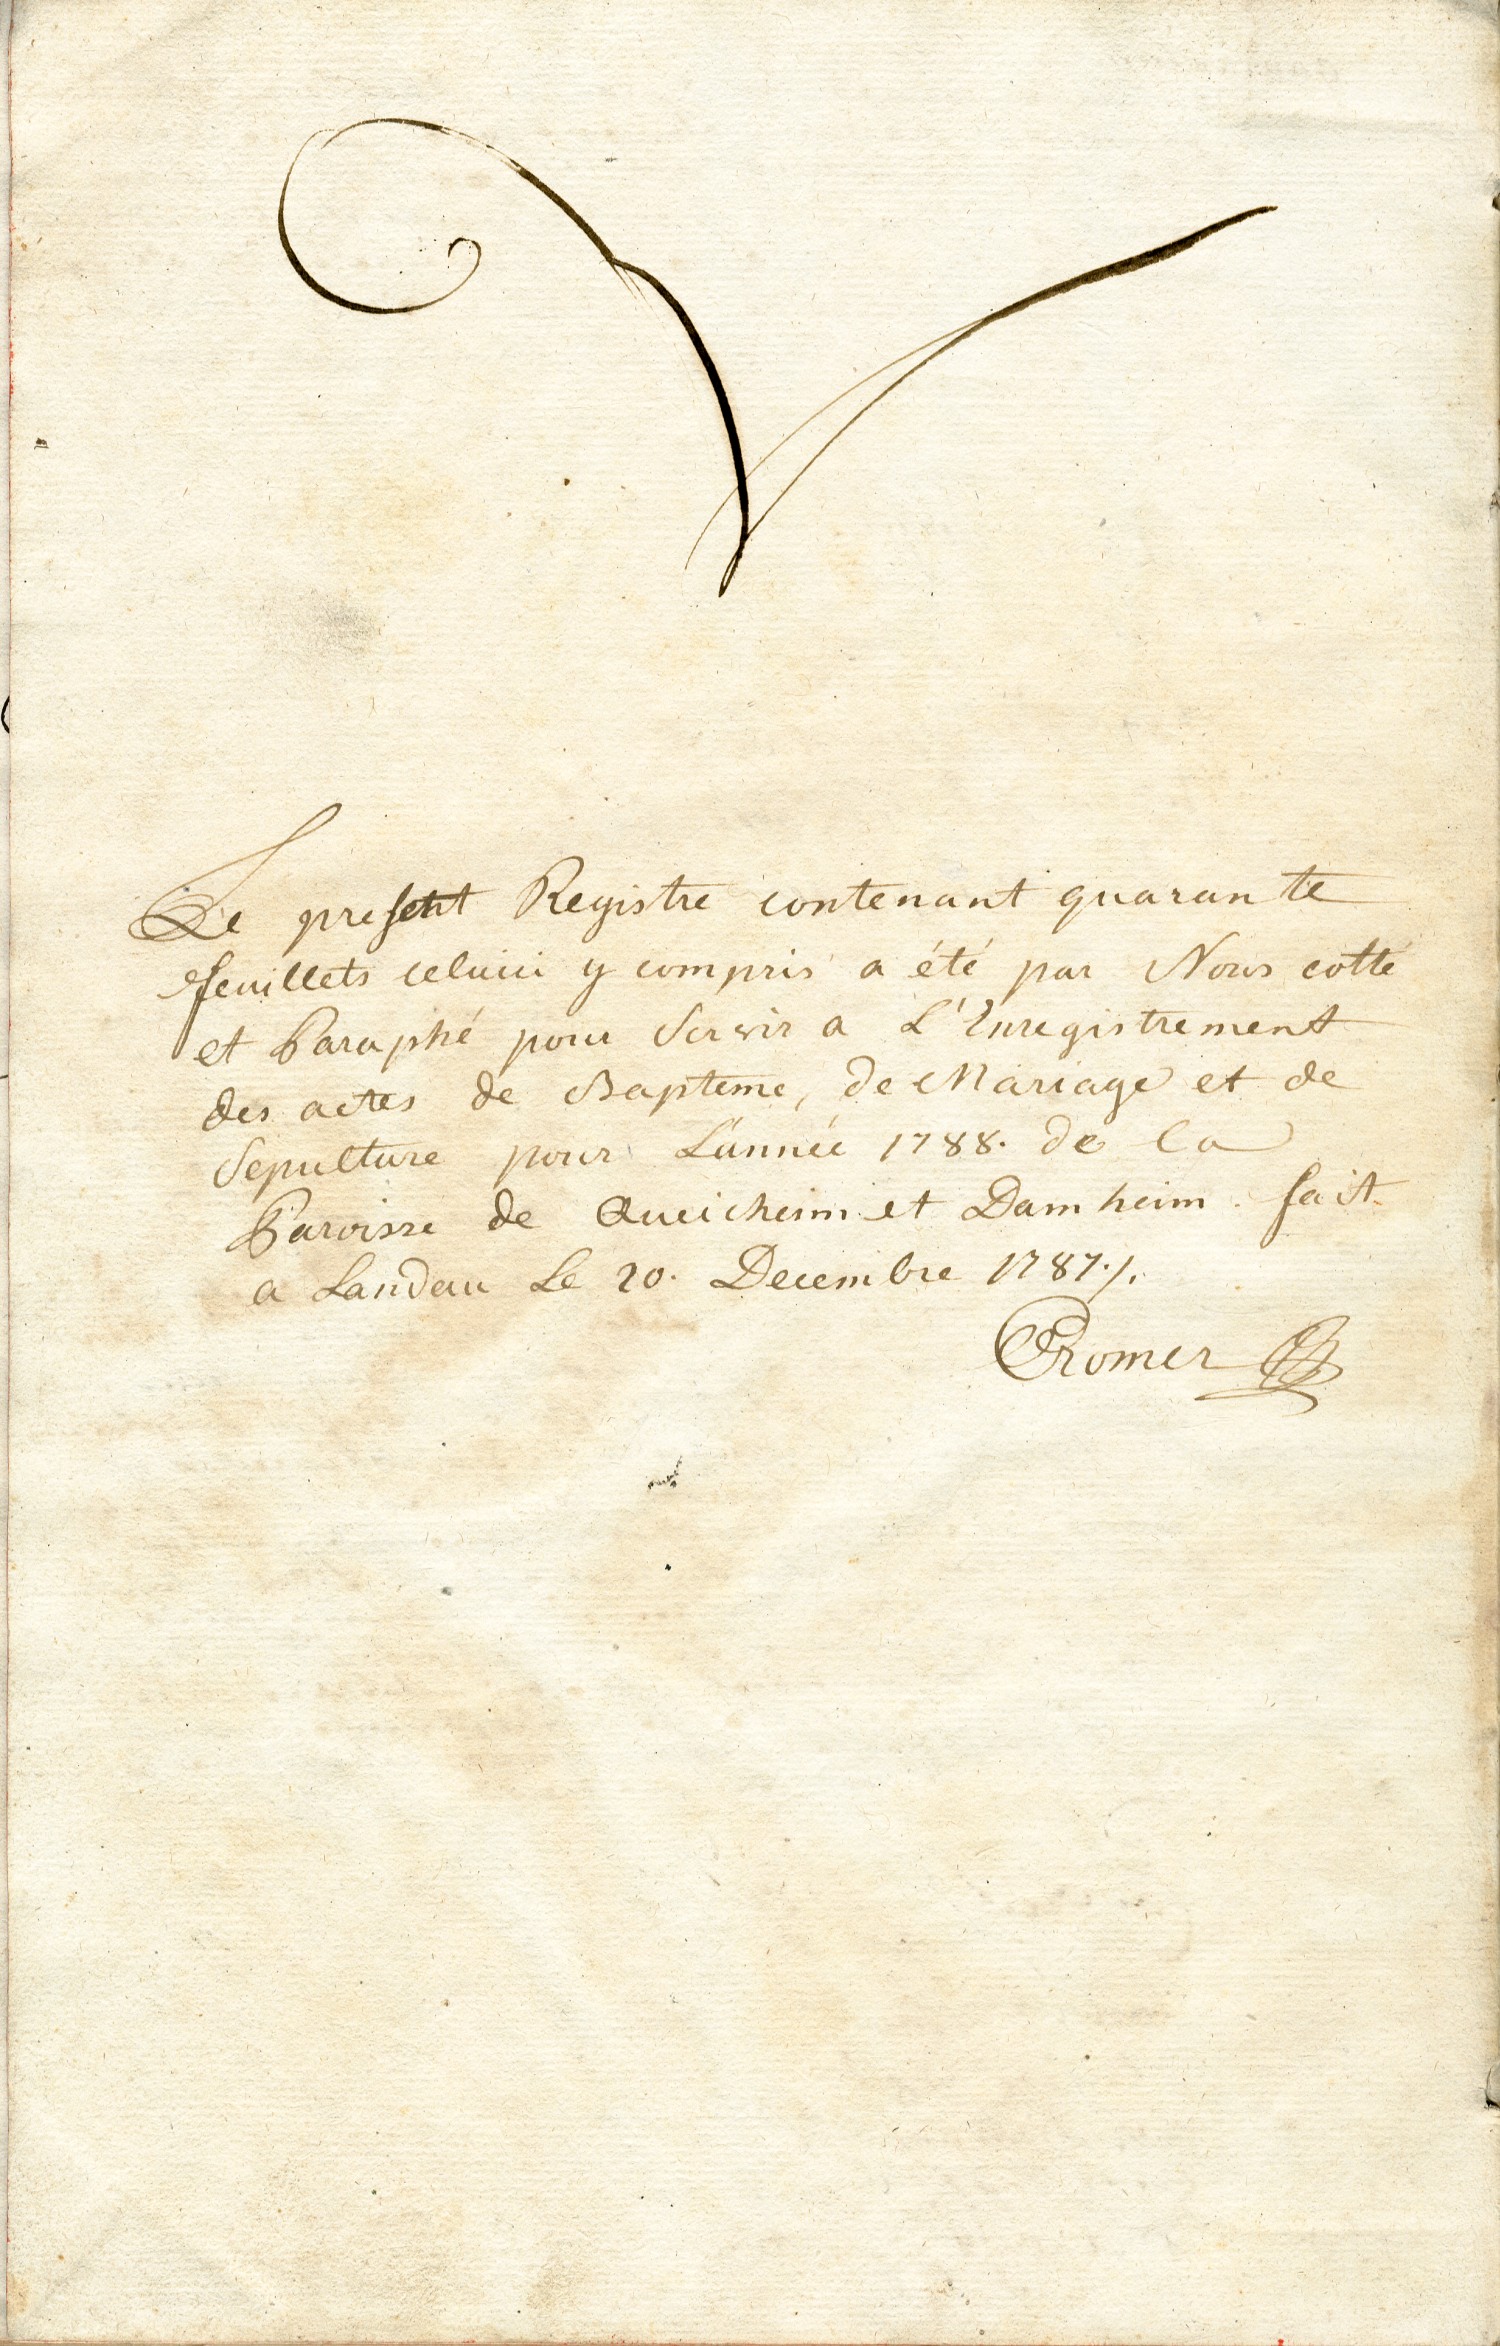 Le present Registre contenant quarante
feuillets celuici y compris a été par Nous cotté
et Paraphé pour Servir a L'Enregistrement
des actes de Bapteme, de Mariage et de
Sepulture pour L'année 1788. de la
Paroisse de Queicheim et Damheim. fait
a Landau Le 20. Decembre 1787./.